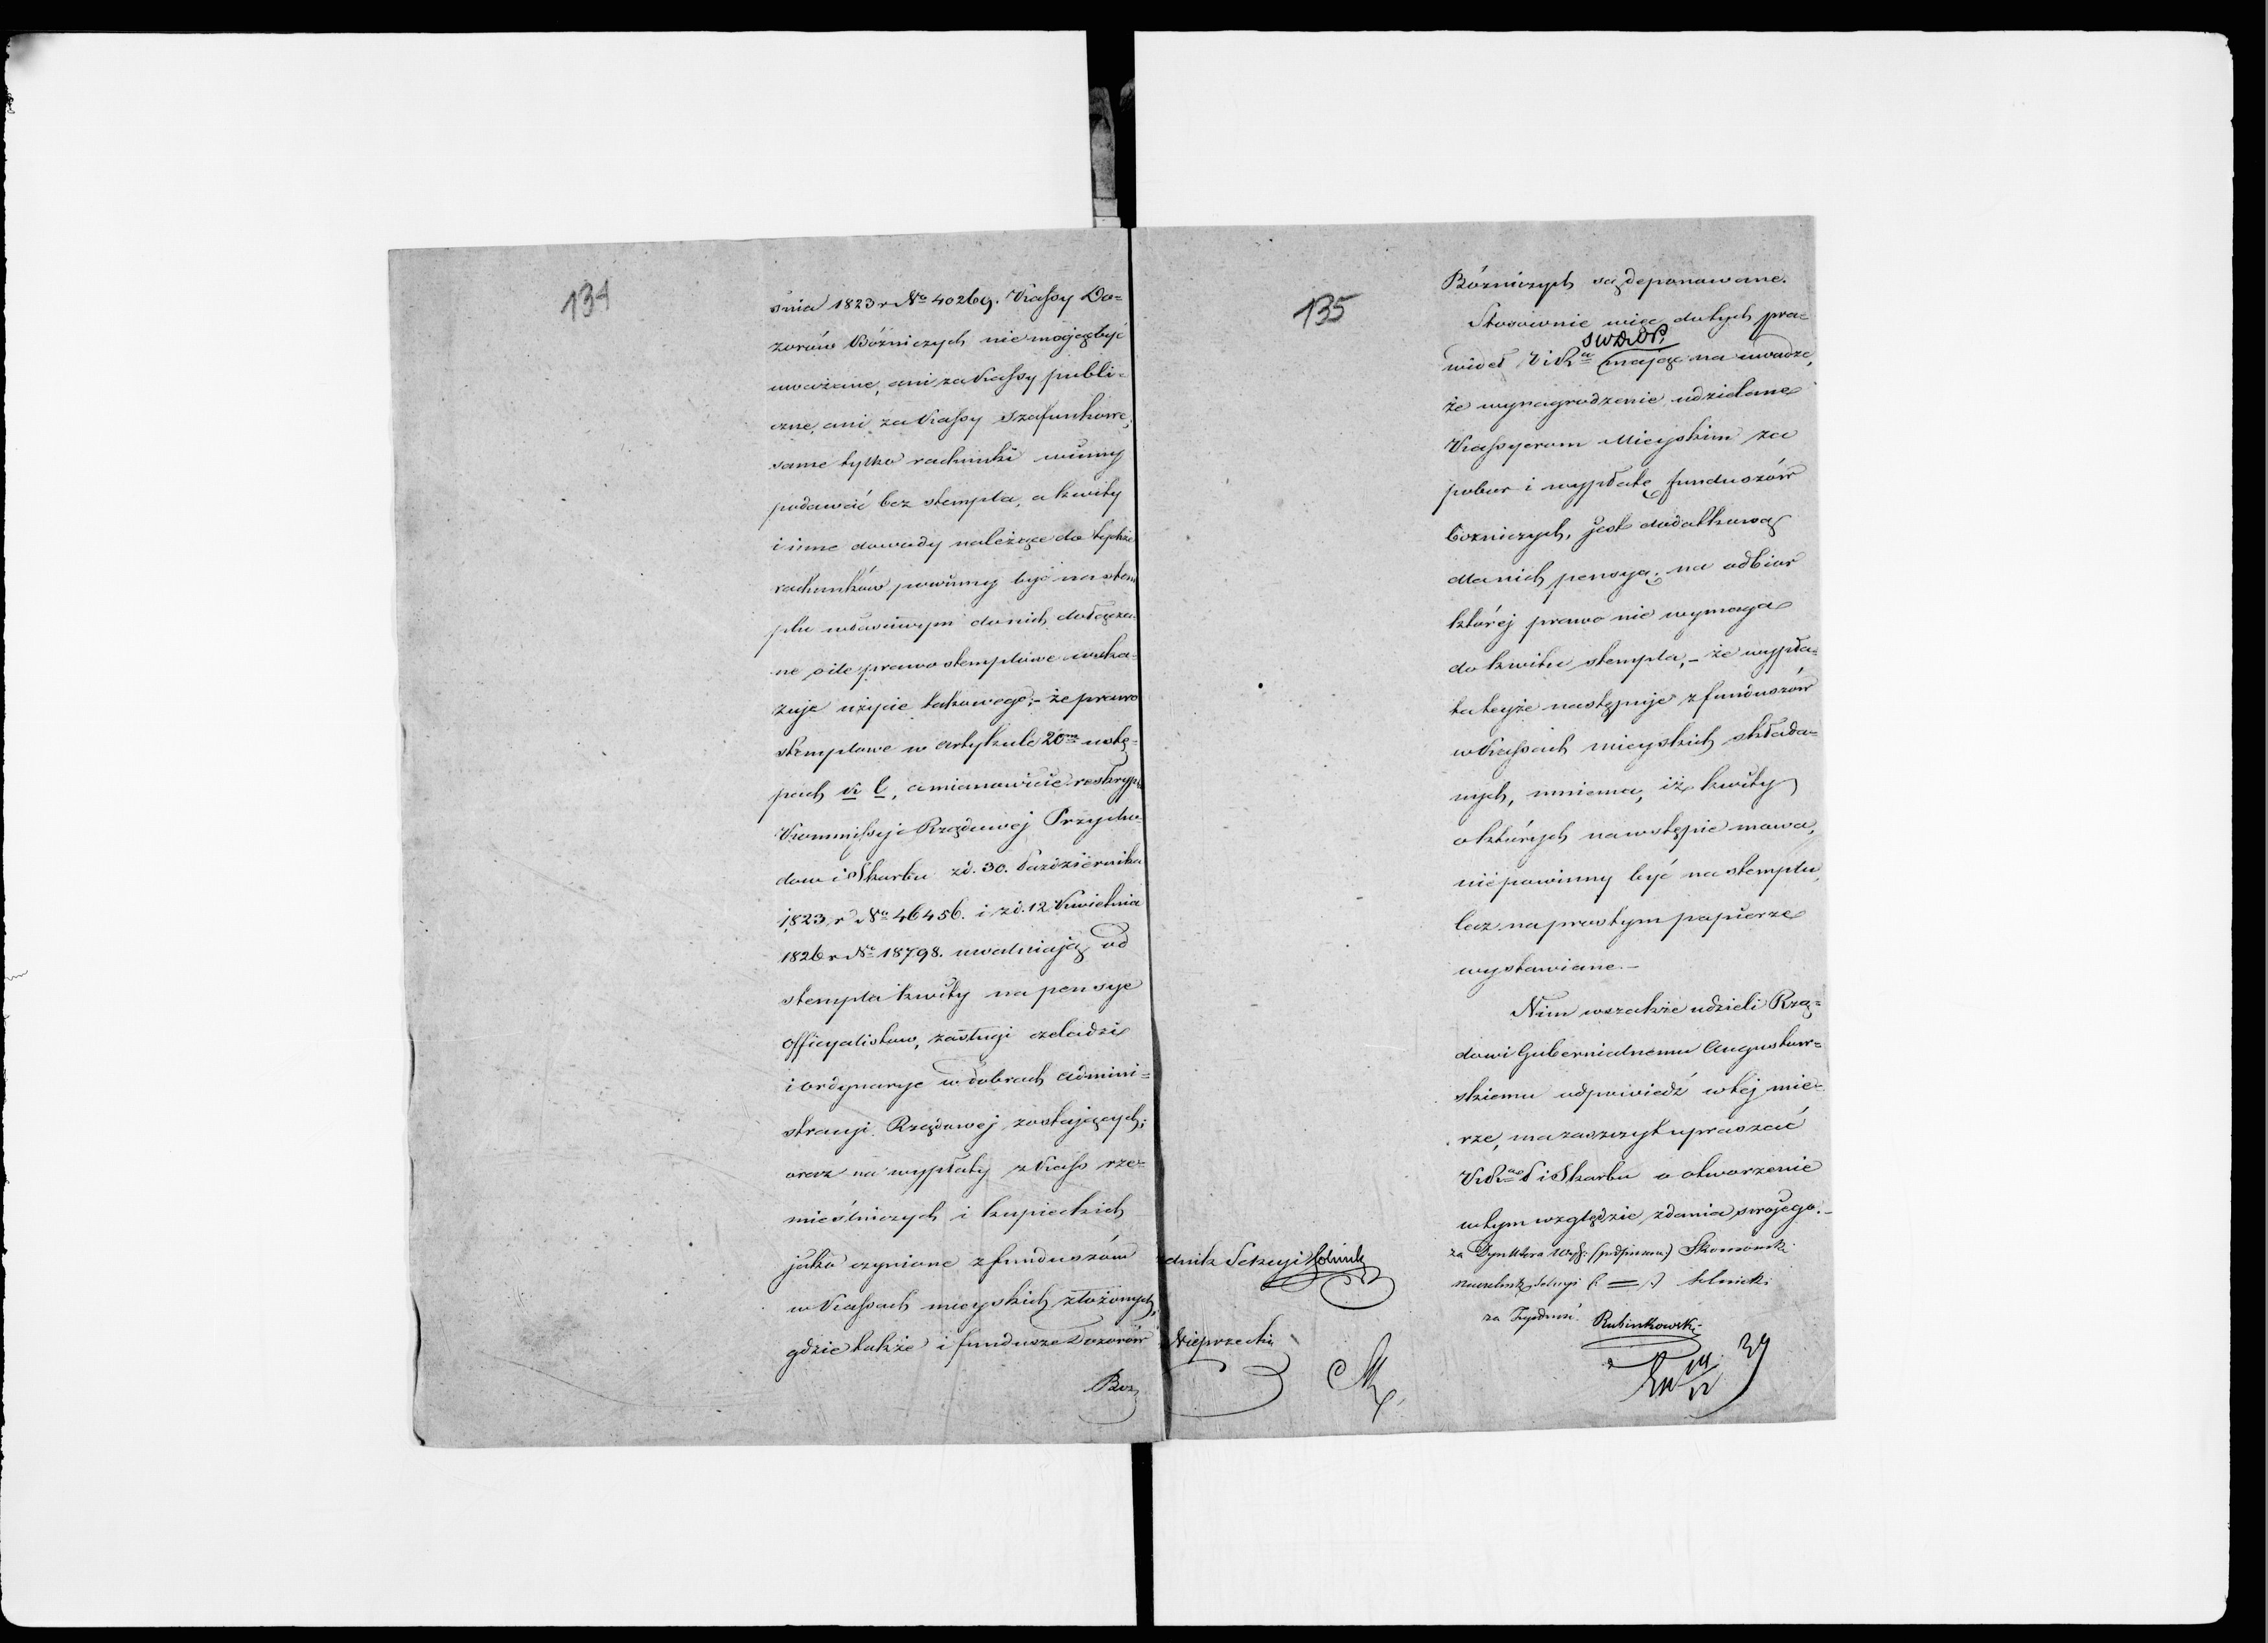 134
śnia 1823 r No 40269. Kassy Do=
zorów Bóżniczych nie mogą być
uważane, ani za Kassy publi=
czne, ani za Kassy Szafunkowe,
same tylko rachunki winny
podawać bez stempla, a kwity
i inne dowody należące do tychże
rachunków powinny być na stem
plu właściwym do nich dołącza
ne o ile prawo stemplowe wska=
zuje użycie takowego; – że prawo
stemplowe w artykule 20m ustę=
pach k l, a mianowicie reskryp
Kommissyi Rządowej Przycho=
dow i Skarbu z d. 30. Października
1823 r No 46456. i z d. 12 Kwietnia
1826 r No 18798. uwalniają od
stempla kwity na pensye
Officyalistow, zasługi czeladzi
i ordynarye w dobrach admini=
stracyi Rządowej zostających;
oraz na wypłaty z Kass rze=
mieślniczych i kupieckich
jako czynione z funduszów
w Kassach mieyskich złożonych,
gdzie także i fundusze Dozorów
Boz
135
Bóżniczych są deponowane.
Stosownie więc do tych pra=
SWDiOP.
wideł KRa mając na uwadze,
że wynagrodzenie udzielane
Kassyerom Mieyskim za
pobor i wypłatę funduszów
bożniczych, jest dodatkową
dla nich pensyą, na odbior
której prawo nie wymaga
do kwitu stempla, – że wypła=
ta teyże następuje z funduszów
w Kassach mieyskich składa=
nych, mniema, iż kwity
o których na wstępie mowa,
nie powinny być na stemplu,
lecz na prostym papierze
wystawiane. –
Nim wszakże udzieli Rzą=
dowi Gubernialnemu Augustow=
skiemu odpowiedź w tej mie=
rze, ma zaszczyt upraszać
KRae P i Skarbu o otworzenie
w tym względzie zdania swojego. –
za Dyrektora Wydz: (podpisano)
Naczelnik Sekcyi (: = :)
za Zgodność Rubinkowski
dnik Sekcyi